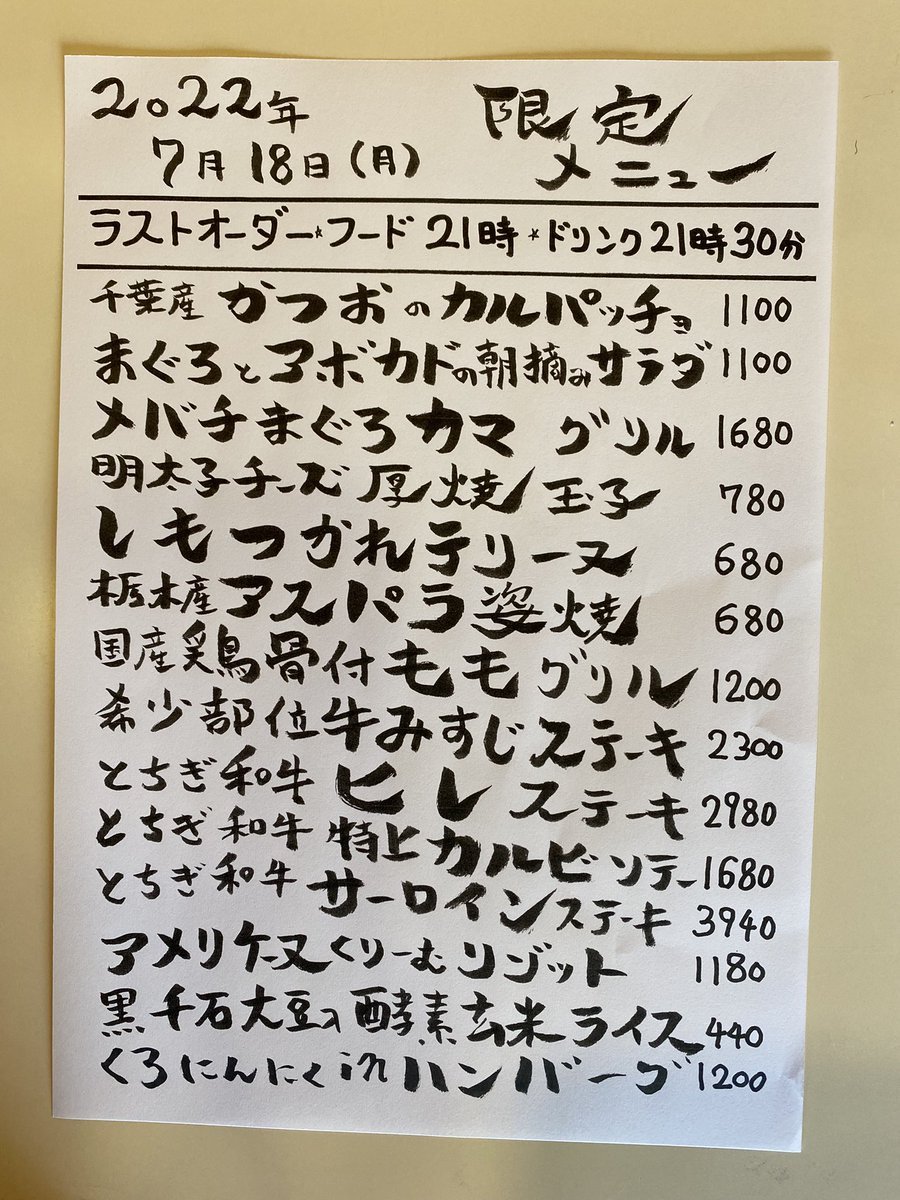 2022年
7月18日(月)
限定
メニュー
ラストオーダー☆フード21時☆ドリンク21時30分
千葉産 かつおのカルパッチョ 1100
まぐろとアボカドの朝摘みサラダ 1100
メバチまぐろカマ グリル 1680
明太子チーズ厚焼玉子 780
しもつかれテリーヌ 680
栃木産アスパラ姿焼 680
国産鶏骨付ももグリル 1200
希少部位牛みすじステーキ 2300
とちぎ和牛 ヒレステーキ 2980
とちぎ和牛 特上カルビソテー 1680
とちぎ和牛 サーロインステーキ 3940
アメリケーヌくりーむリゾット 1180
黒千石大豆入酵素玄米ライス 440
くろにんにくinハンバーグ 1200